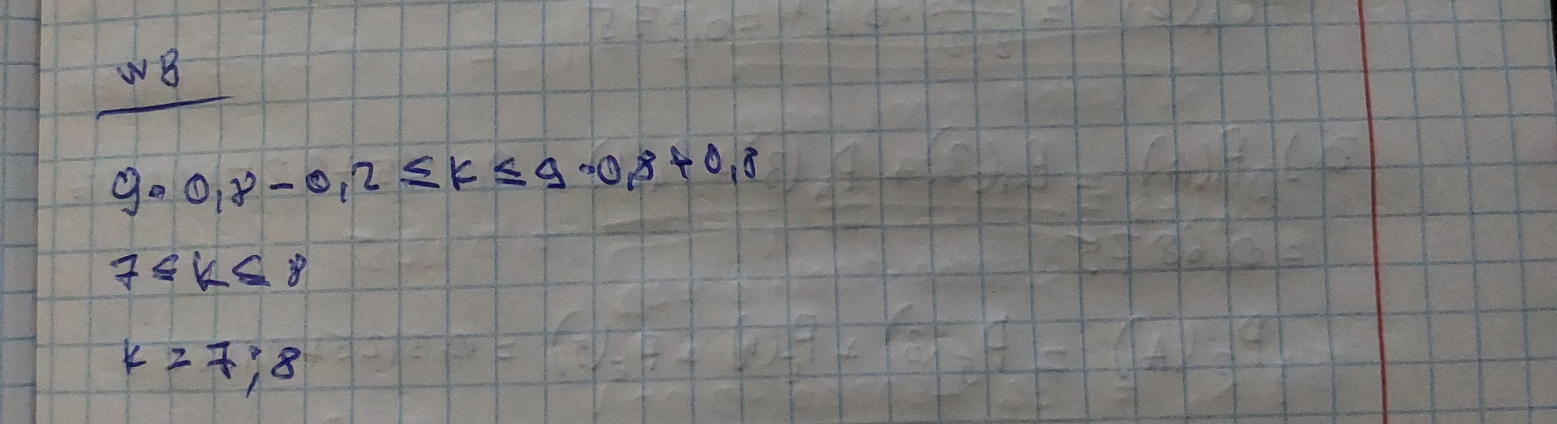 №8
9·0,8-0,2≤k≤9·0,8+0,8
7≤k≤8
k=7;8